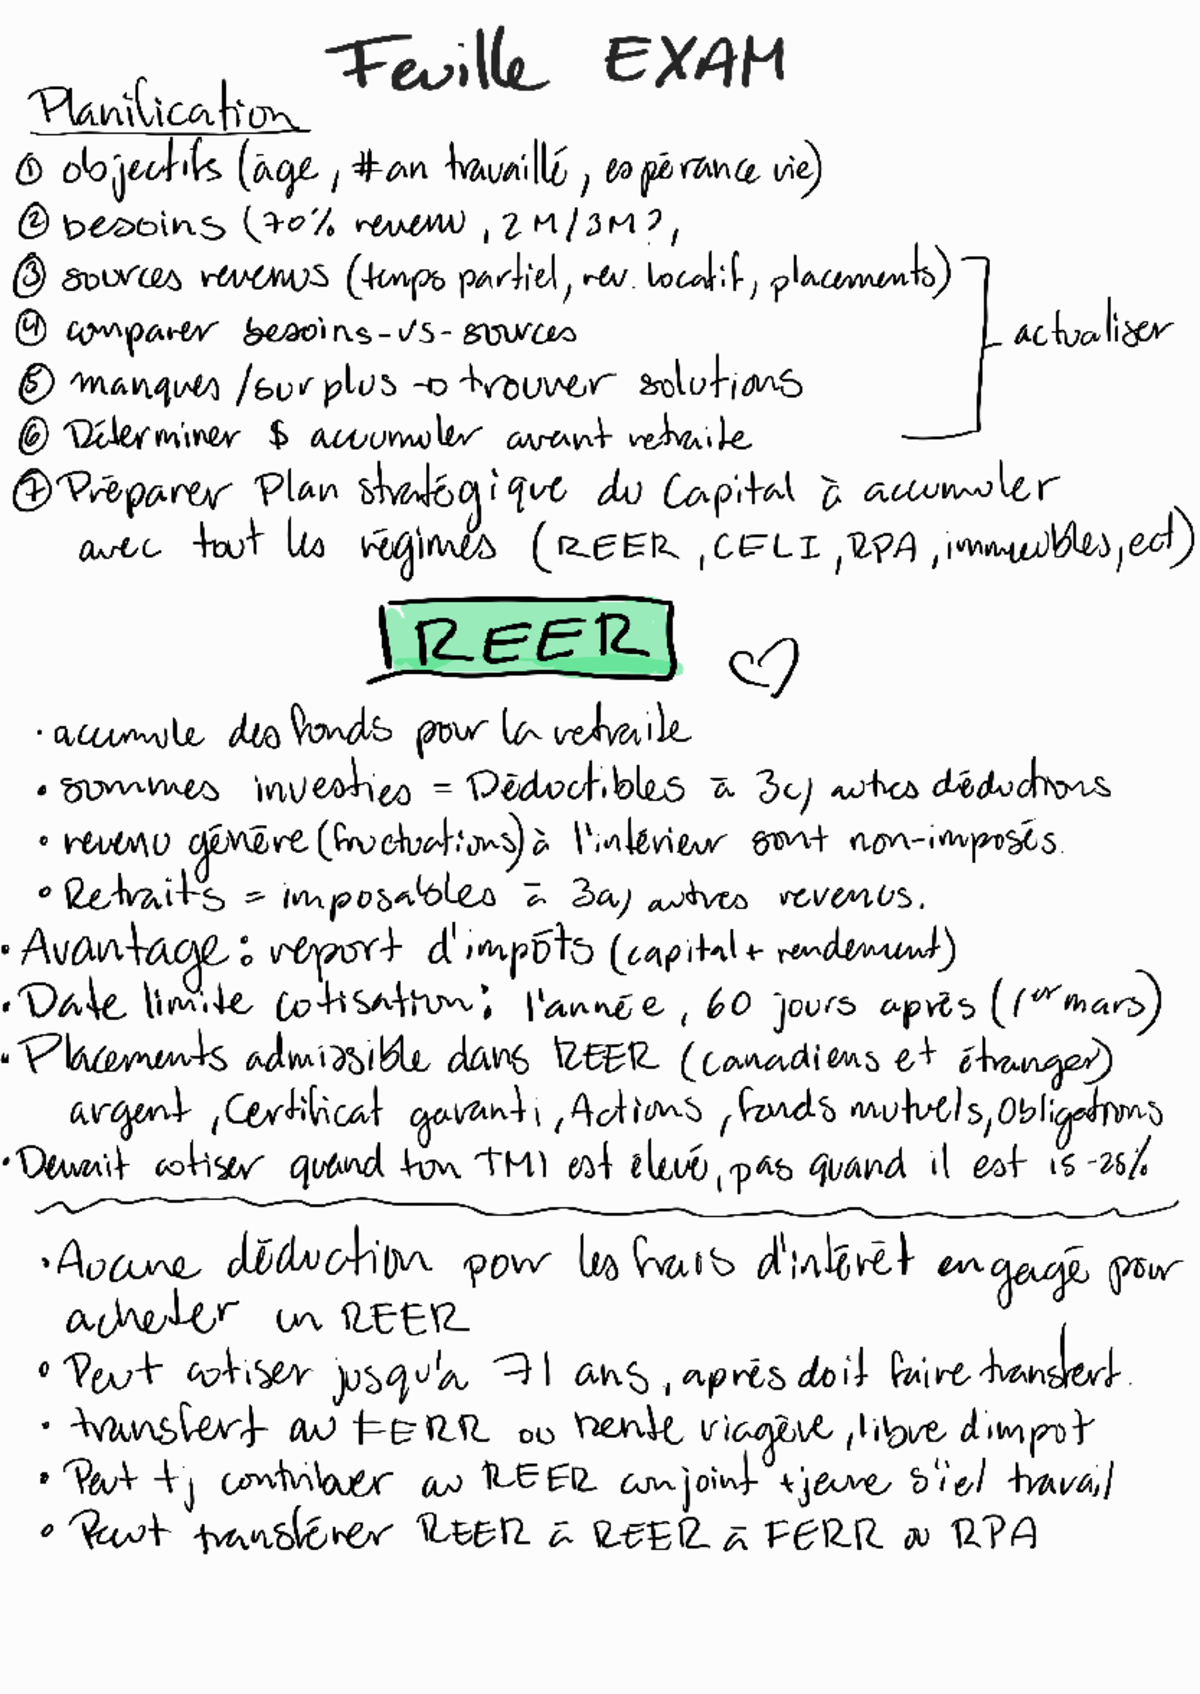 Feuille EXAM
Planification
① objectifs (âge, #an travaillé, espérance vie)
② besoins (70% revenu, 2M/3M?,
③ sources revenus (temps partiel, rev. locatif, placements)
④ comparer besoins-vs-sources
actualiser
⑤ manques/surplus → trouver solutions
⑥ Déterminer $ accumuler avant retraite
⑦ Préparer Plan stratégique du Capital à accumuler
avec tout les régimes (REER, CELI, RPA, immeubles, ect)
REER
• accumule des fonds pour la retraite
• sommes investies = Déductibles à 3c) autres déductions
• revenu génère (fructuations) à l'intérieur sont non-imposés.
• Retraits = imposables à 3a) autres revenus.
• Avantage: report d'impôts (capital + rendement)
• Date limite cotisation: l'année, 60 jours après (1er mars)
• Placements admissible dans REER (canadiens et étranger)
argent, Certificat garanti, Actions, fonds mutuels, Obligations
• Devrait cotiser quand ton TMI est élevé, pas quand il est 15-25%
• Aucune déduction pour les frais d'intérêt engagé pour
acheter un REER
• Peut cotiser jusqu'à 71 ans, après doit faire transfert.
• transfert au FERR ou rente viagère, libre d'impot
• Peut tj contribuer au REER conjoint + jeune s'iel travail
• Peut transférer REER à REER à FERR ou RPA